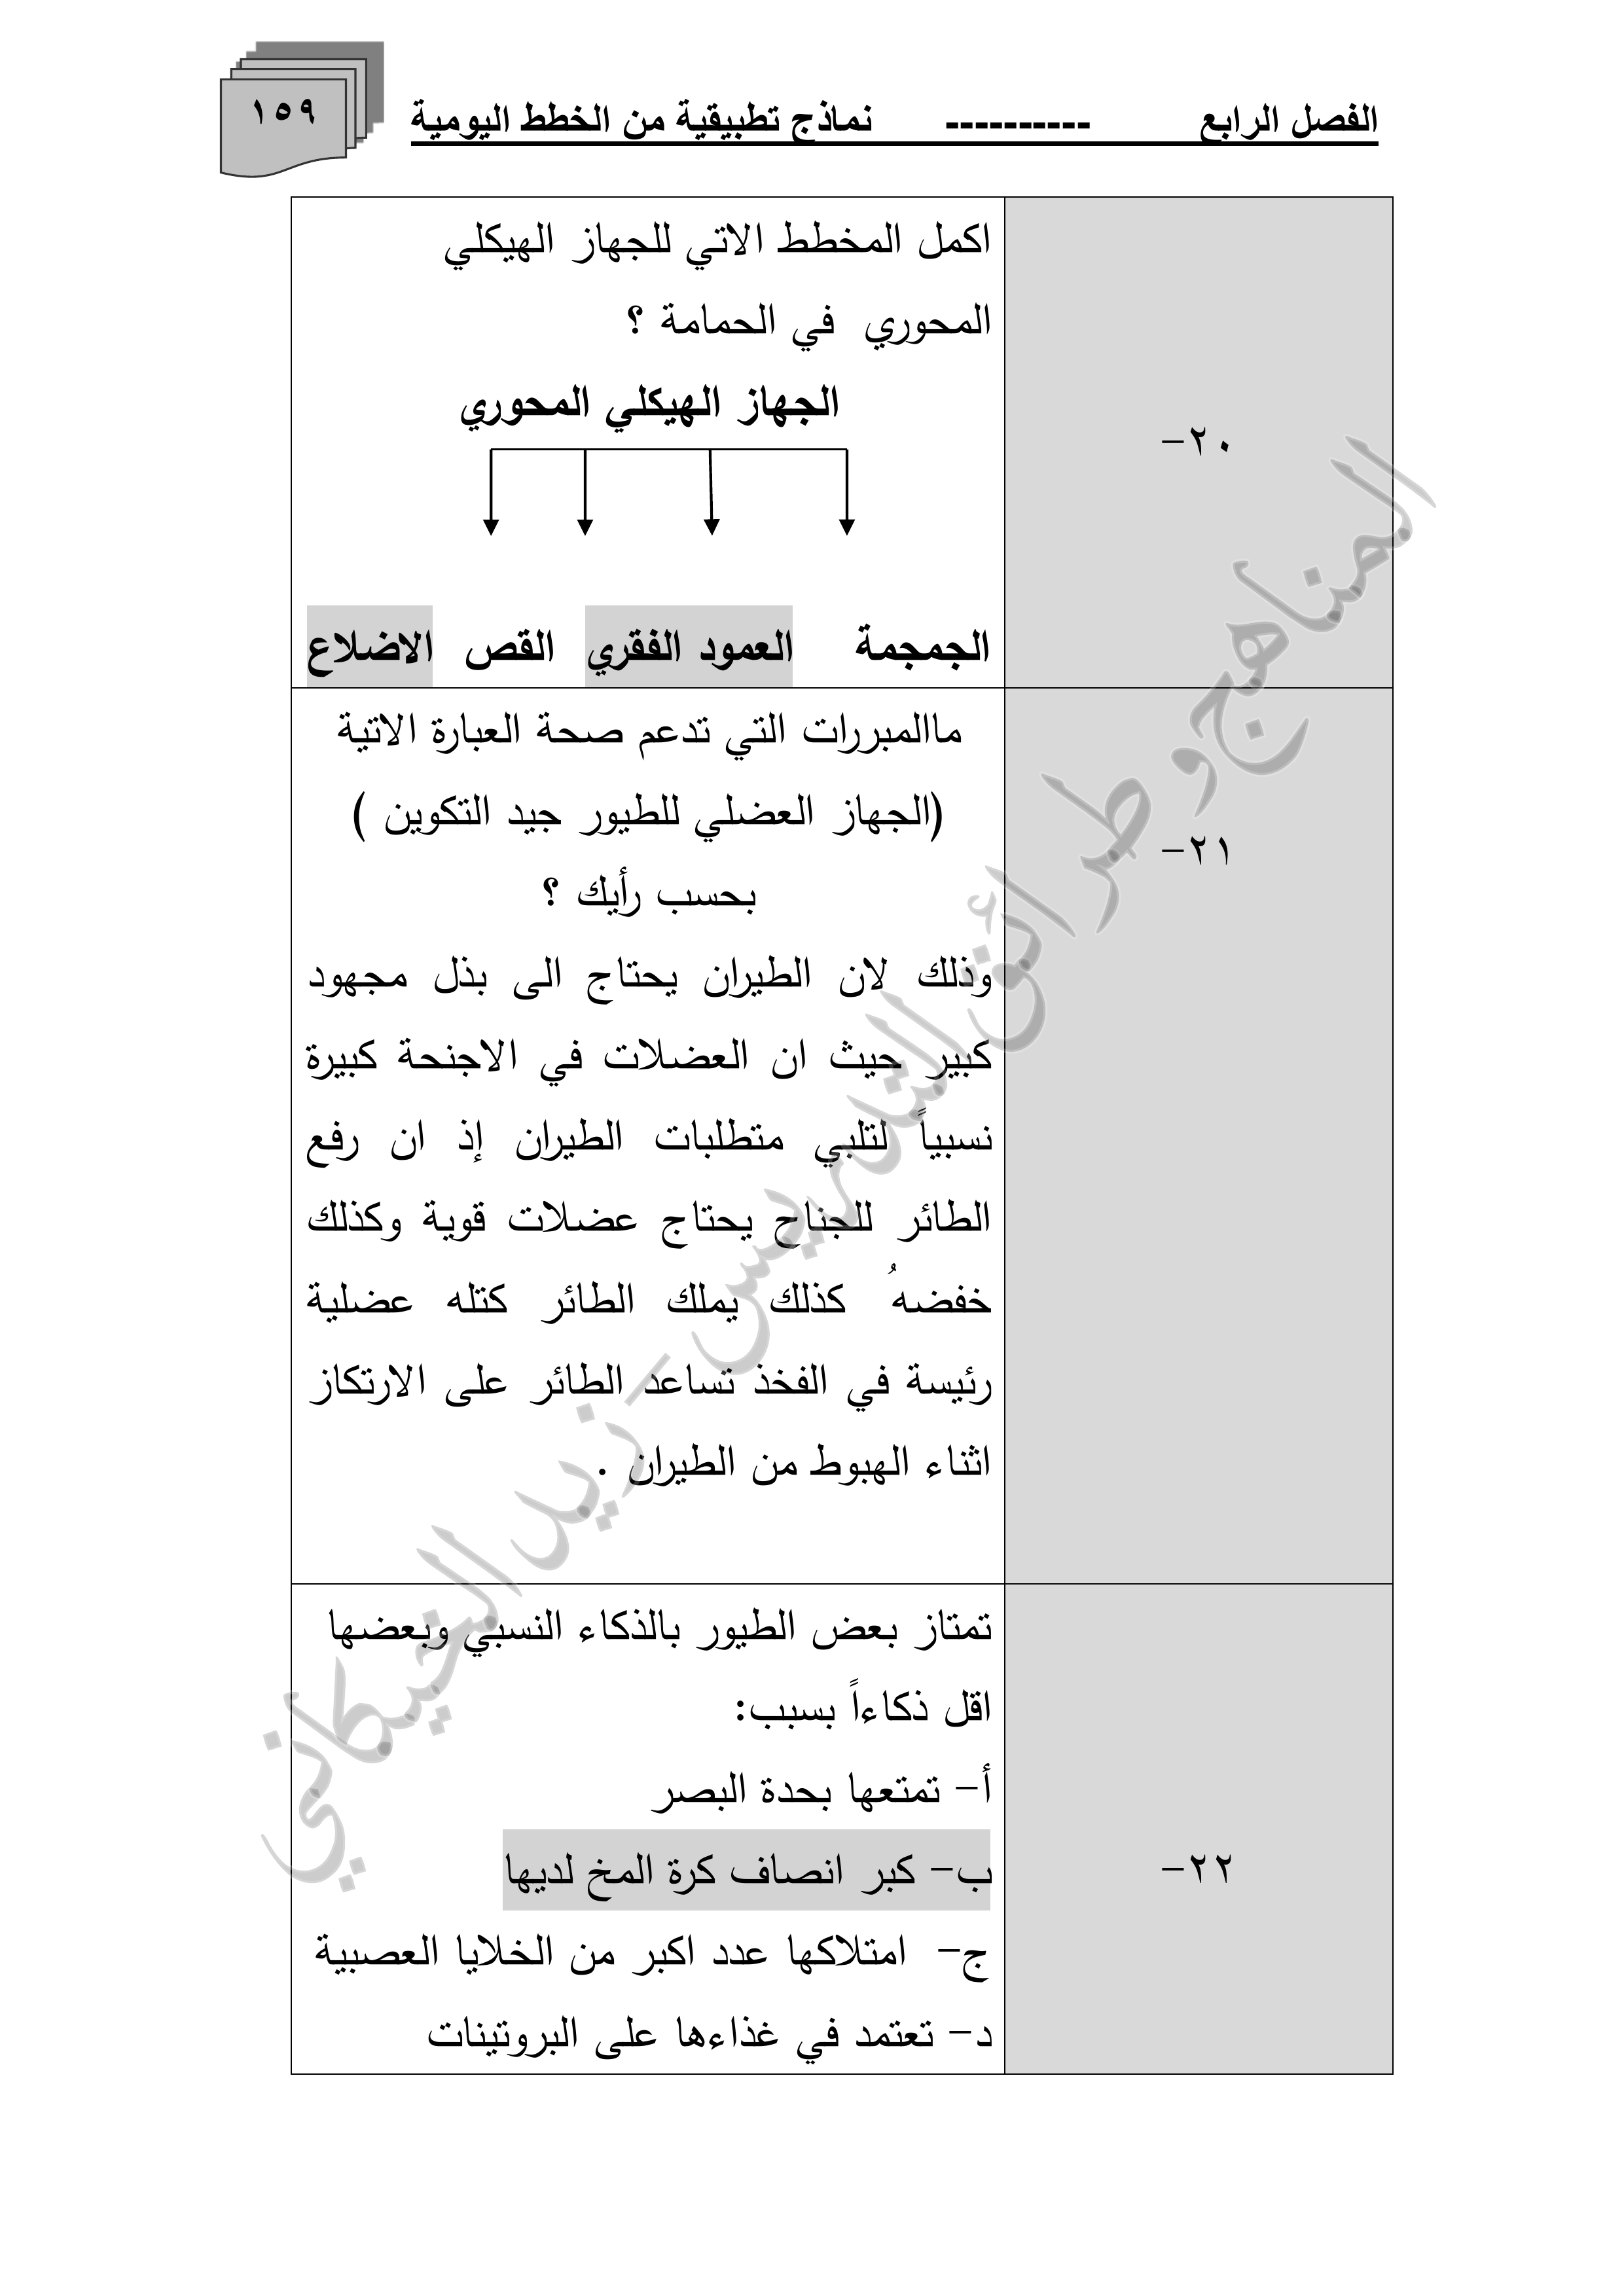 الفصل الرابع ---------- نماذج تطبيقية من الخطط اليومية
١٥٩
٢٠-
اكمل المخطط الاتي للجهاز الهيكلي
المحوري في الحمامة ؟
الجهاز الهيكلي المحوري
الجمجمة العمود الفقري القص الاضلاع
٢١-
ماالمبررات التي تدعم صحة العبارة الاتية
(الجهاز العضلي للطيور جيد التكوين )
بحسب رأيك ؟
وذلك لان الطيران يحتاج الى بذل مجهود
كبير حيث ان العضلات في الاجنحة كبيرة
نسبياً لتلبي متطلبات الطيران إذ ان رفع
الطائر للجناح يحتاج عضلات قوية وكذلك
خفضهُ كذلك يملك الطائر كتله عضلية
رئيسة في الفخذ تساعد الطائر على الارتكاز
اثناء الهبوط من الطيران .
٢٢-
تمتاز بعض الطيور بالذكاء النسبي وبعضها
اقل ذكاءاً بسبب:
أ- تمتعها بحدة البصر
ب- كبر انصاف كرة المخ لديها
ج- امتلاكها عدد اكبر من الخلايا العصبية
د- تعتمد في غذاءها على البروتينات
المناهج وطرائق التدريس - زيد الخيكاني